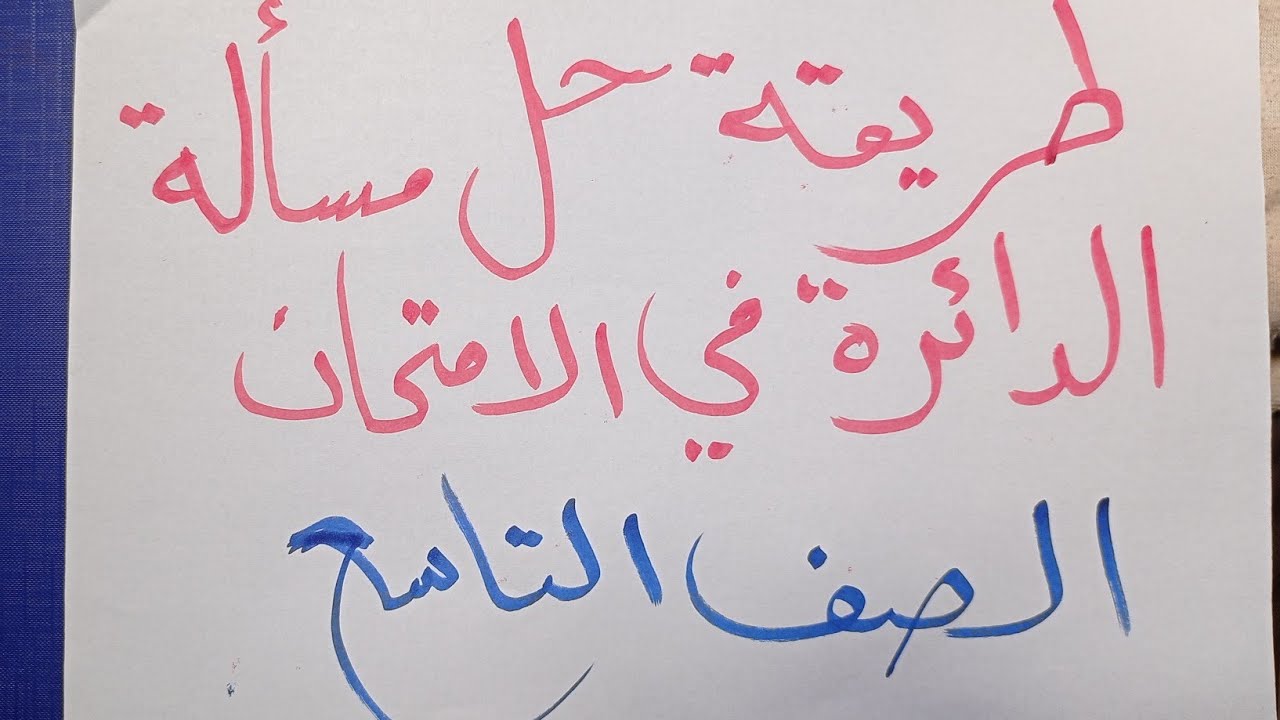 طريقة حل مسألة
الدائرة في الامتحان
الصف التاسع